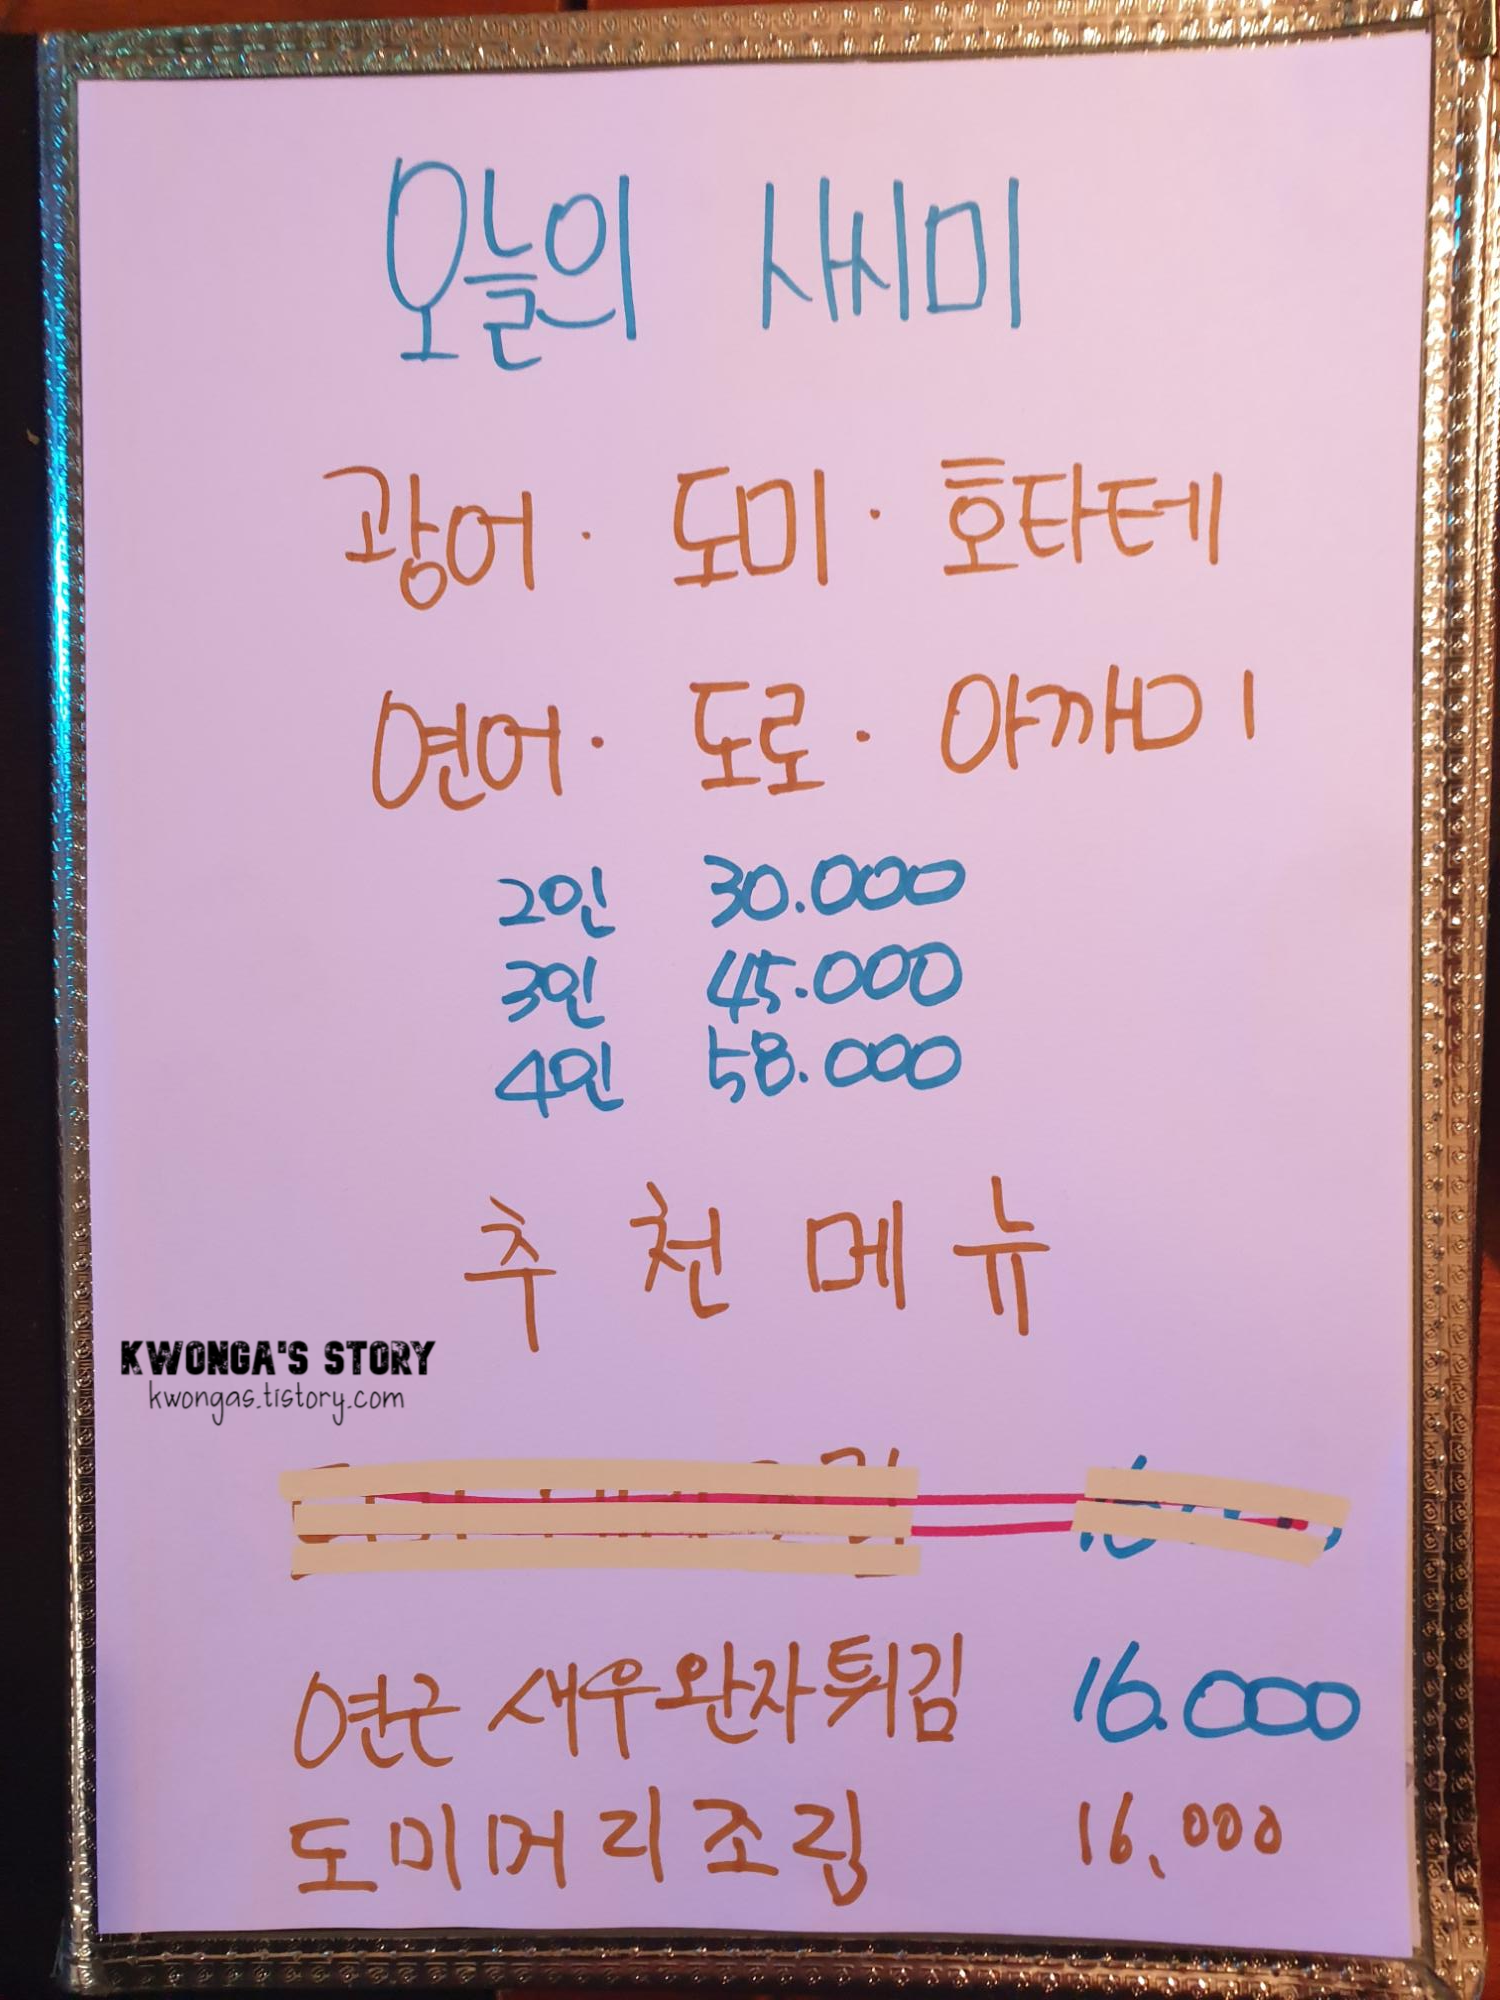 오늘의 사씨미
광어 · 도미 · 호타테
연어 · 도로 · 아까미
2인 30.000
3인 45.000
4인 58.000
추천메뉴
KWONGA'S STORY
kwongas.tistory.com
연근 새우완자튀김 16.000
도미머리조림 16,000